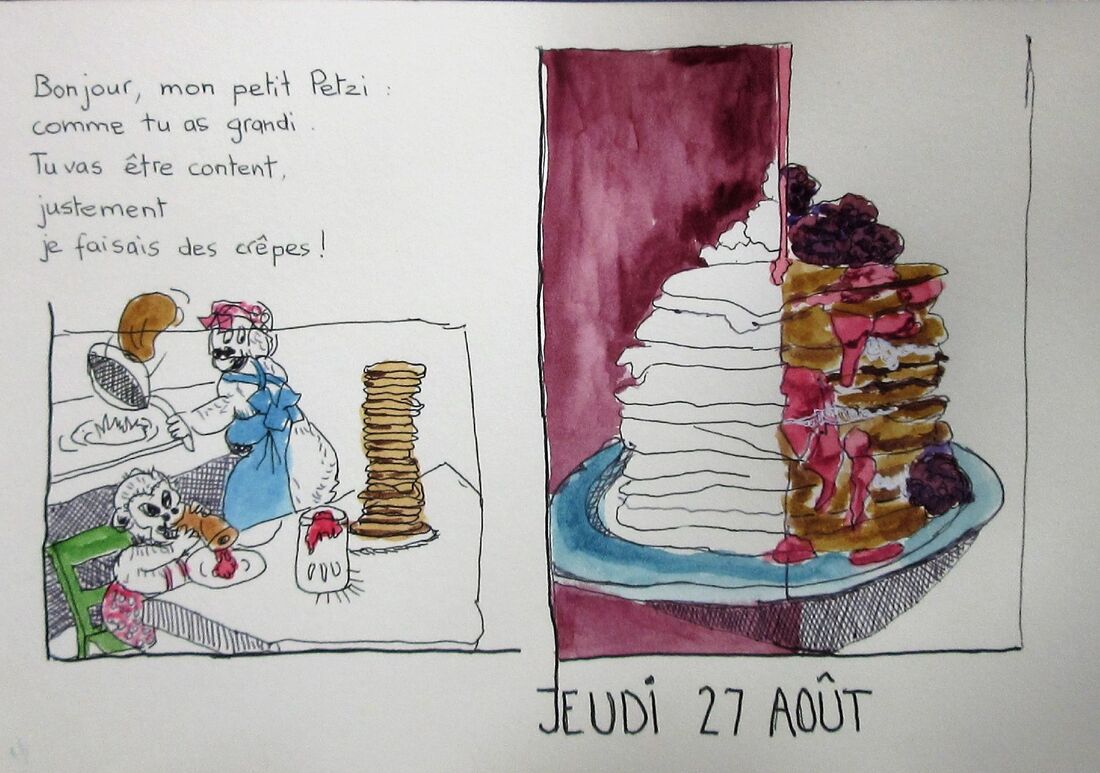 Bonjour, mon petit Petzi :
comme tu as grandi.
Tu vas être content,
justement
je faisais des crêpes !
JEUDI 27 AOÛT